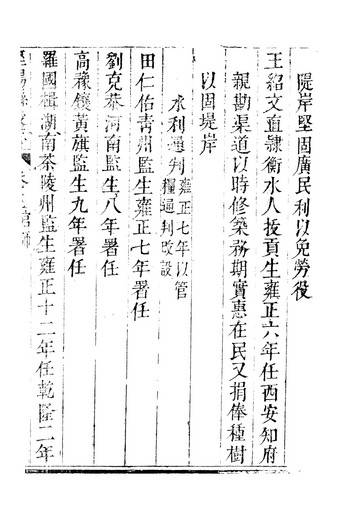 隄岸堅固廣民利以免勞役
王紹文直隷衡水人拔貢生雍正六年任西安知府
親勘渠道以時修築務期實惠在民又捐俸種樹
以固堤岸
水利通判雍正七年以管
糧通判改設
田仁佑青州監生雍正七年署任
劉克恭河南監生八年署任
高稼鑲黃旗監生九年署任
羅國楫湖南茶陵州監生雍正十二年任乾隆二年